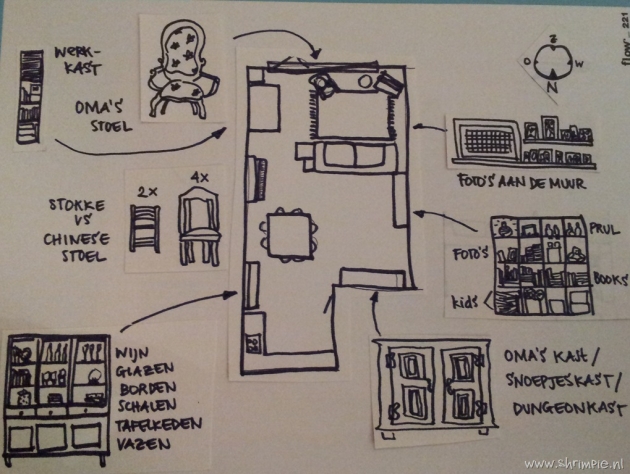 WERK-
KAST
OMA'S
STOEL
Z
O W
N
flow_221
2x
4x
STOKKE
VS
CHINESE
STOEL
FOTO'S AAN DE MUUR
FOTO'S
PRUL
BOOKS
Kids
WIJN
GLAZEN
BORDEN
SCHALEN
TAFELKEDEN
VAZEN
OMA'S KAST/
SNOEPJESKAST/
DUNGEONKAST
www.shrimpie.nl